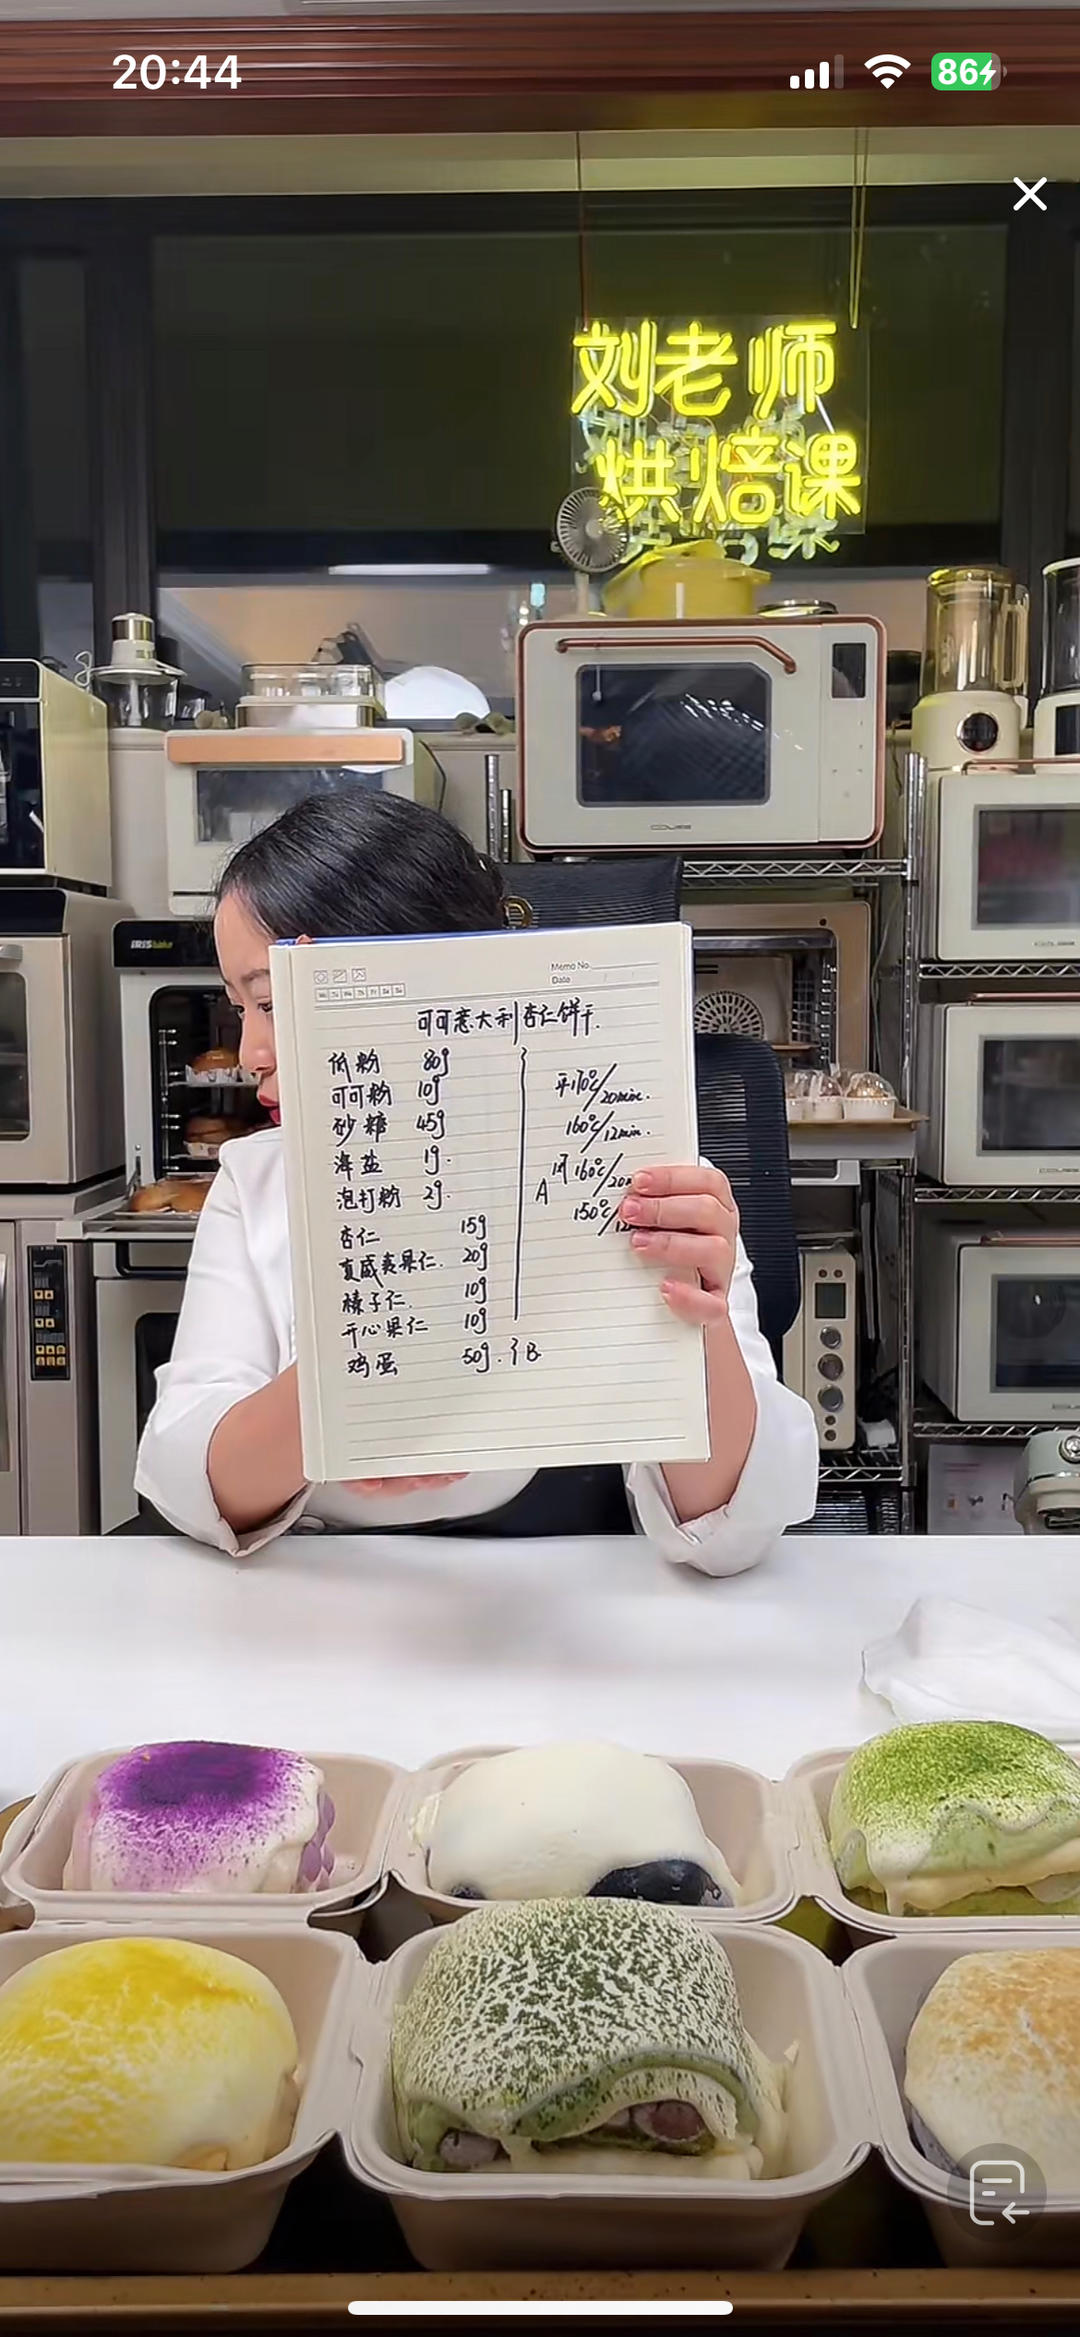 20:44
86
刘老师
烘焙课
IRIS
Memo No.
Date
可可意大利杏仁饼干.
低粉 80g
可可粉 10g
砂糖 45g
海盐 1g.
泡打粉 2g.
杏仁 15g
夏威夷果仁. 20g
榛子仁. 10g
开心果仁 10g
鸡蛋 50g. }B
平170℃/20min.
160℃/12min.
A
风160℃/20
150℃/12